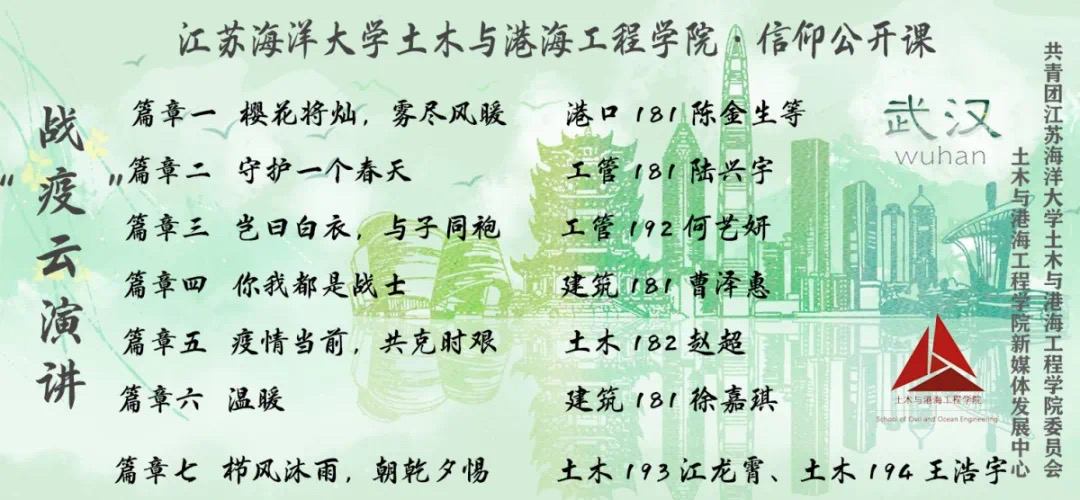 江苏海洋大学土木与港海工程学院·信仰公开课
战“疫”云演讲
篇章一 樱花将灿，雾尽风暖 港口 181 陈金生等
篇章二 守护一个春天 工管 181 陆兴宇
篇章三 岂曰白衣，与子同袍 工管 192 何艺妍
篇章四 你我都是战士 建筑 181 曹泽惠
篇章五 疫情当前，共克时艰 土木 182 赵超
篇章六 温暖 建筑 181 徐嘉琪
篇章七 栉风沐雨，朝乾夕惕 土木 193 江龙霄、土木 194 王浩宇
武汉
wuhan
土木与港海工程学院
School of Civil and Ocean Engineering
共青团江苏海洋大学土木与港海工程学院委员会
土木与港海工程学院新媒体发展中心